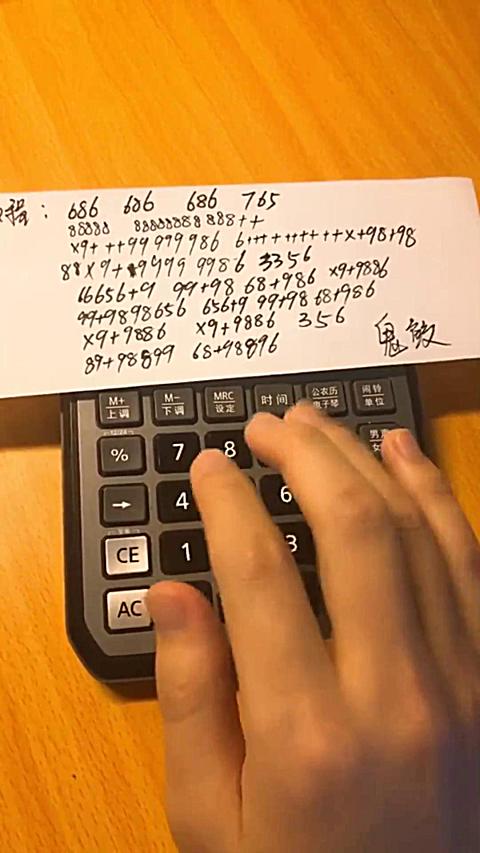 : 686 606 686 765
88888 88888888 888++
x9+ ++99 999986 6+++ ++++++x+98+98
88x9+ 9999 9986 3356
66656+9 99+98 68+986 x9+9886
99+9898656 656+9 99+98 68+986
x9+9886 x9+9886 356
89+98899 68+98896
鬼
M+ 上调 M- 下调 MRC 设定 时间 公农历 电子琴 闹铃 单位
% 7 8 男
→ 4 6
CE 1 3
AC